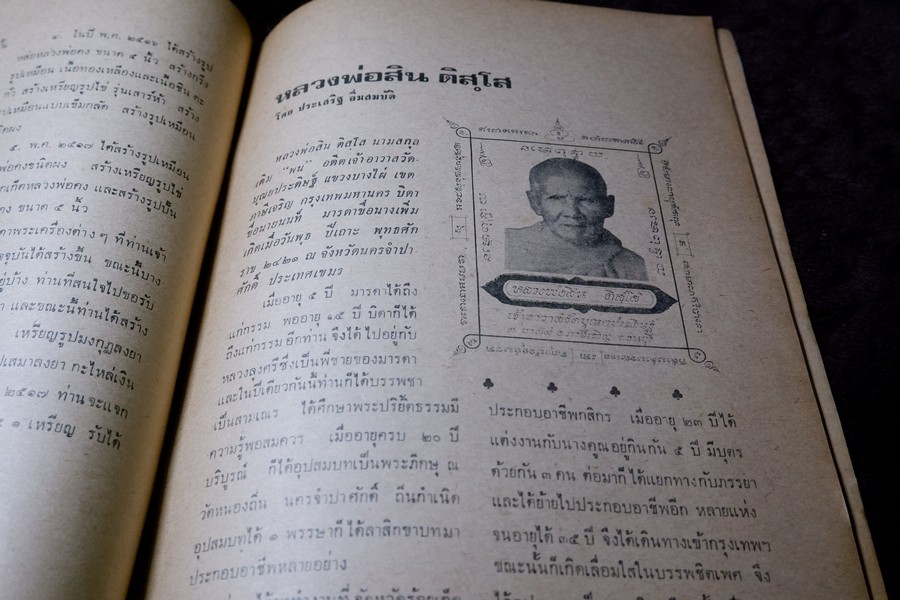 ๔. ในปี พ.ศ. ๒๕๑๖ ได้สร้างรูป
หล่อหลวงพ่อคง ขนาด ๕ นิ้ว สร้างกริ่ง
รูปเหมือน เนื้อทองเหลืองและเนื้อชิน ตะ
สร้างเหรียญรูปไข่ รุ่นเสาร์ห้า สร้าง
เหมือนแบบเข็มกลัด สร้างรูปเหมือน
๕. พ.ศ. ๒๕๑๗ ได้สร้างรูปเหมือน
พ่อคงชนิดผง สร้างเหรียญรูปไข่
หลวงพ่อคง และสร้างรูปปั้น
คง ขนาด ๕ นิ้ว
พระเครื่องต่าง ๆ ที่ท่านเจ้า
จุบันได้สร้างขึ้น ขณะนี้บาง
อยู่บ้าง ท่านที่สนใจไปขอรับ
และขณะนี้ท่านได้สร้าง
เหรียญรูปมงกุฎลงยา
ปเสมาลงยา กะไหล่เงิน
๒๕๑๗ ท่านจะแจก
๑ เหรียญ รับได้
หลวงพ่อสิน ติสฺโส
โดย ประเสริฐ อิ่มสมบัติ
หลวงพ่อสิน ติสฺโส นามสกุล
เดิม "พน" อดีตเจ้าอาวาสวัด-
บุณยประดิษฐ์ แขวงบางไผ่ เขต
ภาษีเจริญ กรุงเทพมหานคร บิดา
ชื่อนายนนท์ มารดาชื่อนางเพิ่ม
เกิดเมื่อวันพุธ ปีเถาะ พุทธศัก
ราช ๒๔๒๑ ณ จังหวัดนครจำปา-
ศักดิ์ ประเทศเขมร
เมื่ออายุ ๕ ปี มารดาได้ถึง
แก่กรรม พออายุ ๑๕ ปี บิดาก็ได้
ถึงแก่กรรมอีกท่าน จึงได้ไปอยู่กับ
หลวงลงศรีซึ่งเป็นพี่ชายของมารดา
และในปีเดียวกันนี้ท่านก็ได้บรรพชา
เป็นสามเณร ได้ศึกษาพระปริยัติธรรมมี
ความรู้พอสมควร เมื่ออายุครบ ๒๐ ปี
บริบูรณ์ ก็ได้อุปสมบทเป็นพระภิกษุ ณ
วัดหนองถิ่น นครจำปาศักดิ์ ถิ่นกำเนิด
อุปสมบทได้ ๑ พรรษาก็ได้ลาสิกขาบทมา
ประกอบอาชีพหลายอย่าง
หลวงพ่อสิน ติสฺโส
ประกอบอาชีพกสิกร เมื่ออายุ ๒๓ ปีได้
แต่งงานกับนางคูณอยู่กินกัน ๕ ปี มีบุตร
ด้วยกัน ๓ คน ต่อมาก็ได้แยกทางกับภรรยา
และได้ย้ายไปประกอบอาชีพอีก หลายแห่ง
จนอายุได้ ๓๕ ปี จึงได้เดินทางเข้ากรุงเทพฯ
ขณะนั้นก็เกิดเลื่อมใสในบรรพชิตเพศ จึง